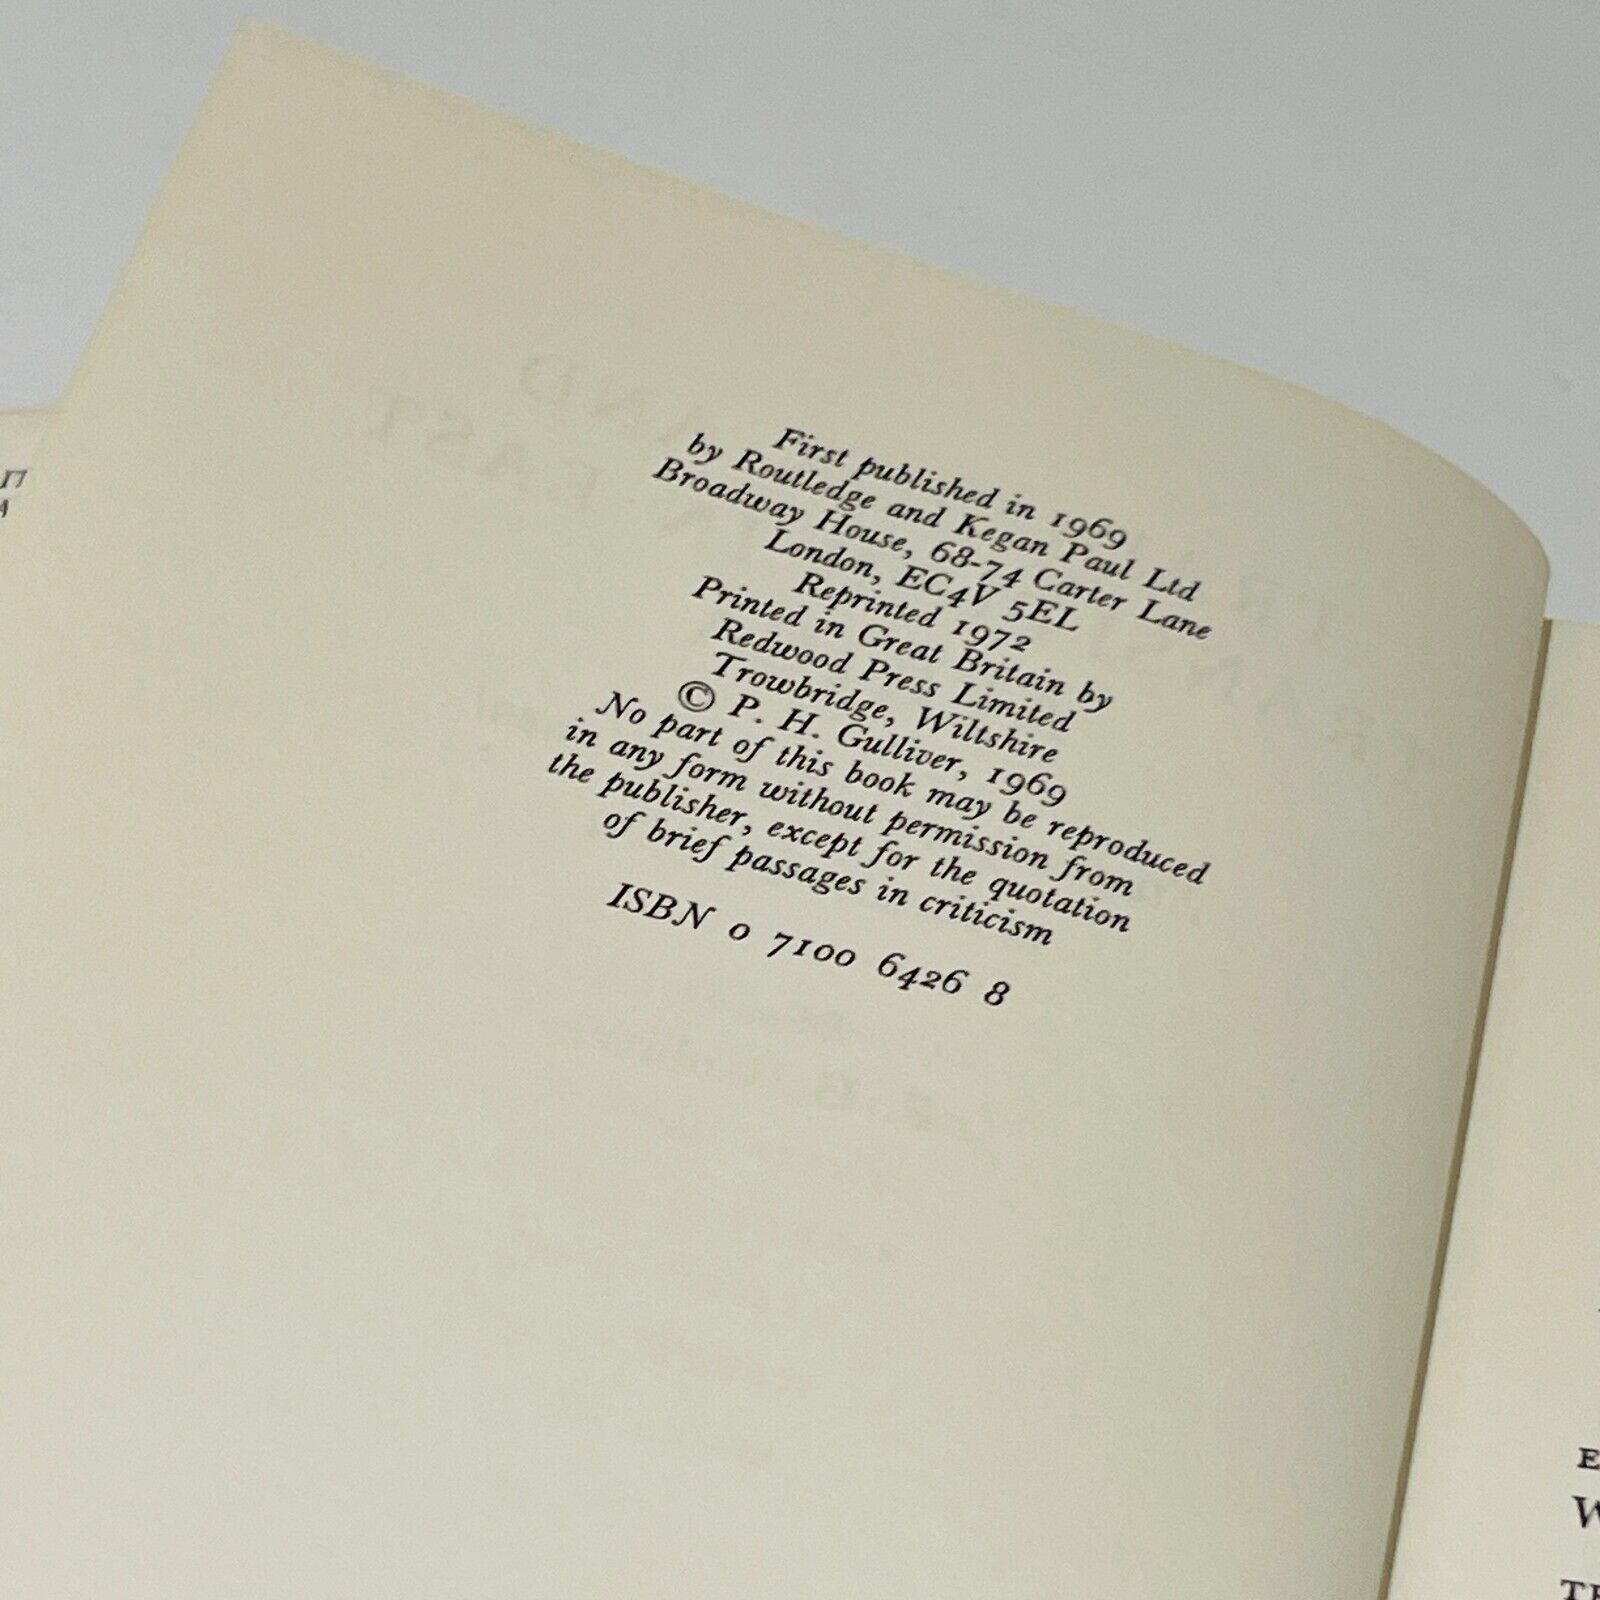 First published in 1969
by Routledge and Kegan Paul Ltd
Broadway House, 68-74 Carter Lane
London, EC4V 5EL
Reprinted 1972
Printed in Great Britain by
Redwood Press Limited
Trowbridge, Wiltshire
© P. H. Gulliver, 1969
No part of this book may be reproduced
in any form without permission from
the publisher, except for the quotation
of brief passages in criticism
ISBN 0 7100 6426 8